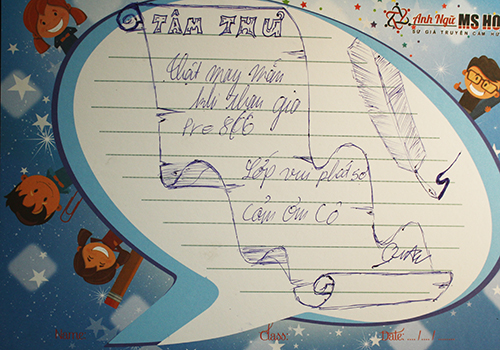 TÂM THƯ
Anh Ngữ MS HO
SỨ GIẢ TRUYỀN CẢM HỨ
Thật may mắn
khi tham gia
Pre 866
Lớp vui phát sợ
Cảm ơn Cô
Name:
Class:
Date: ..../..../......